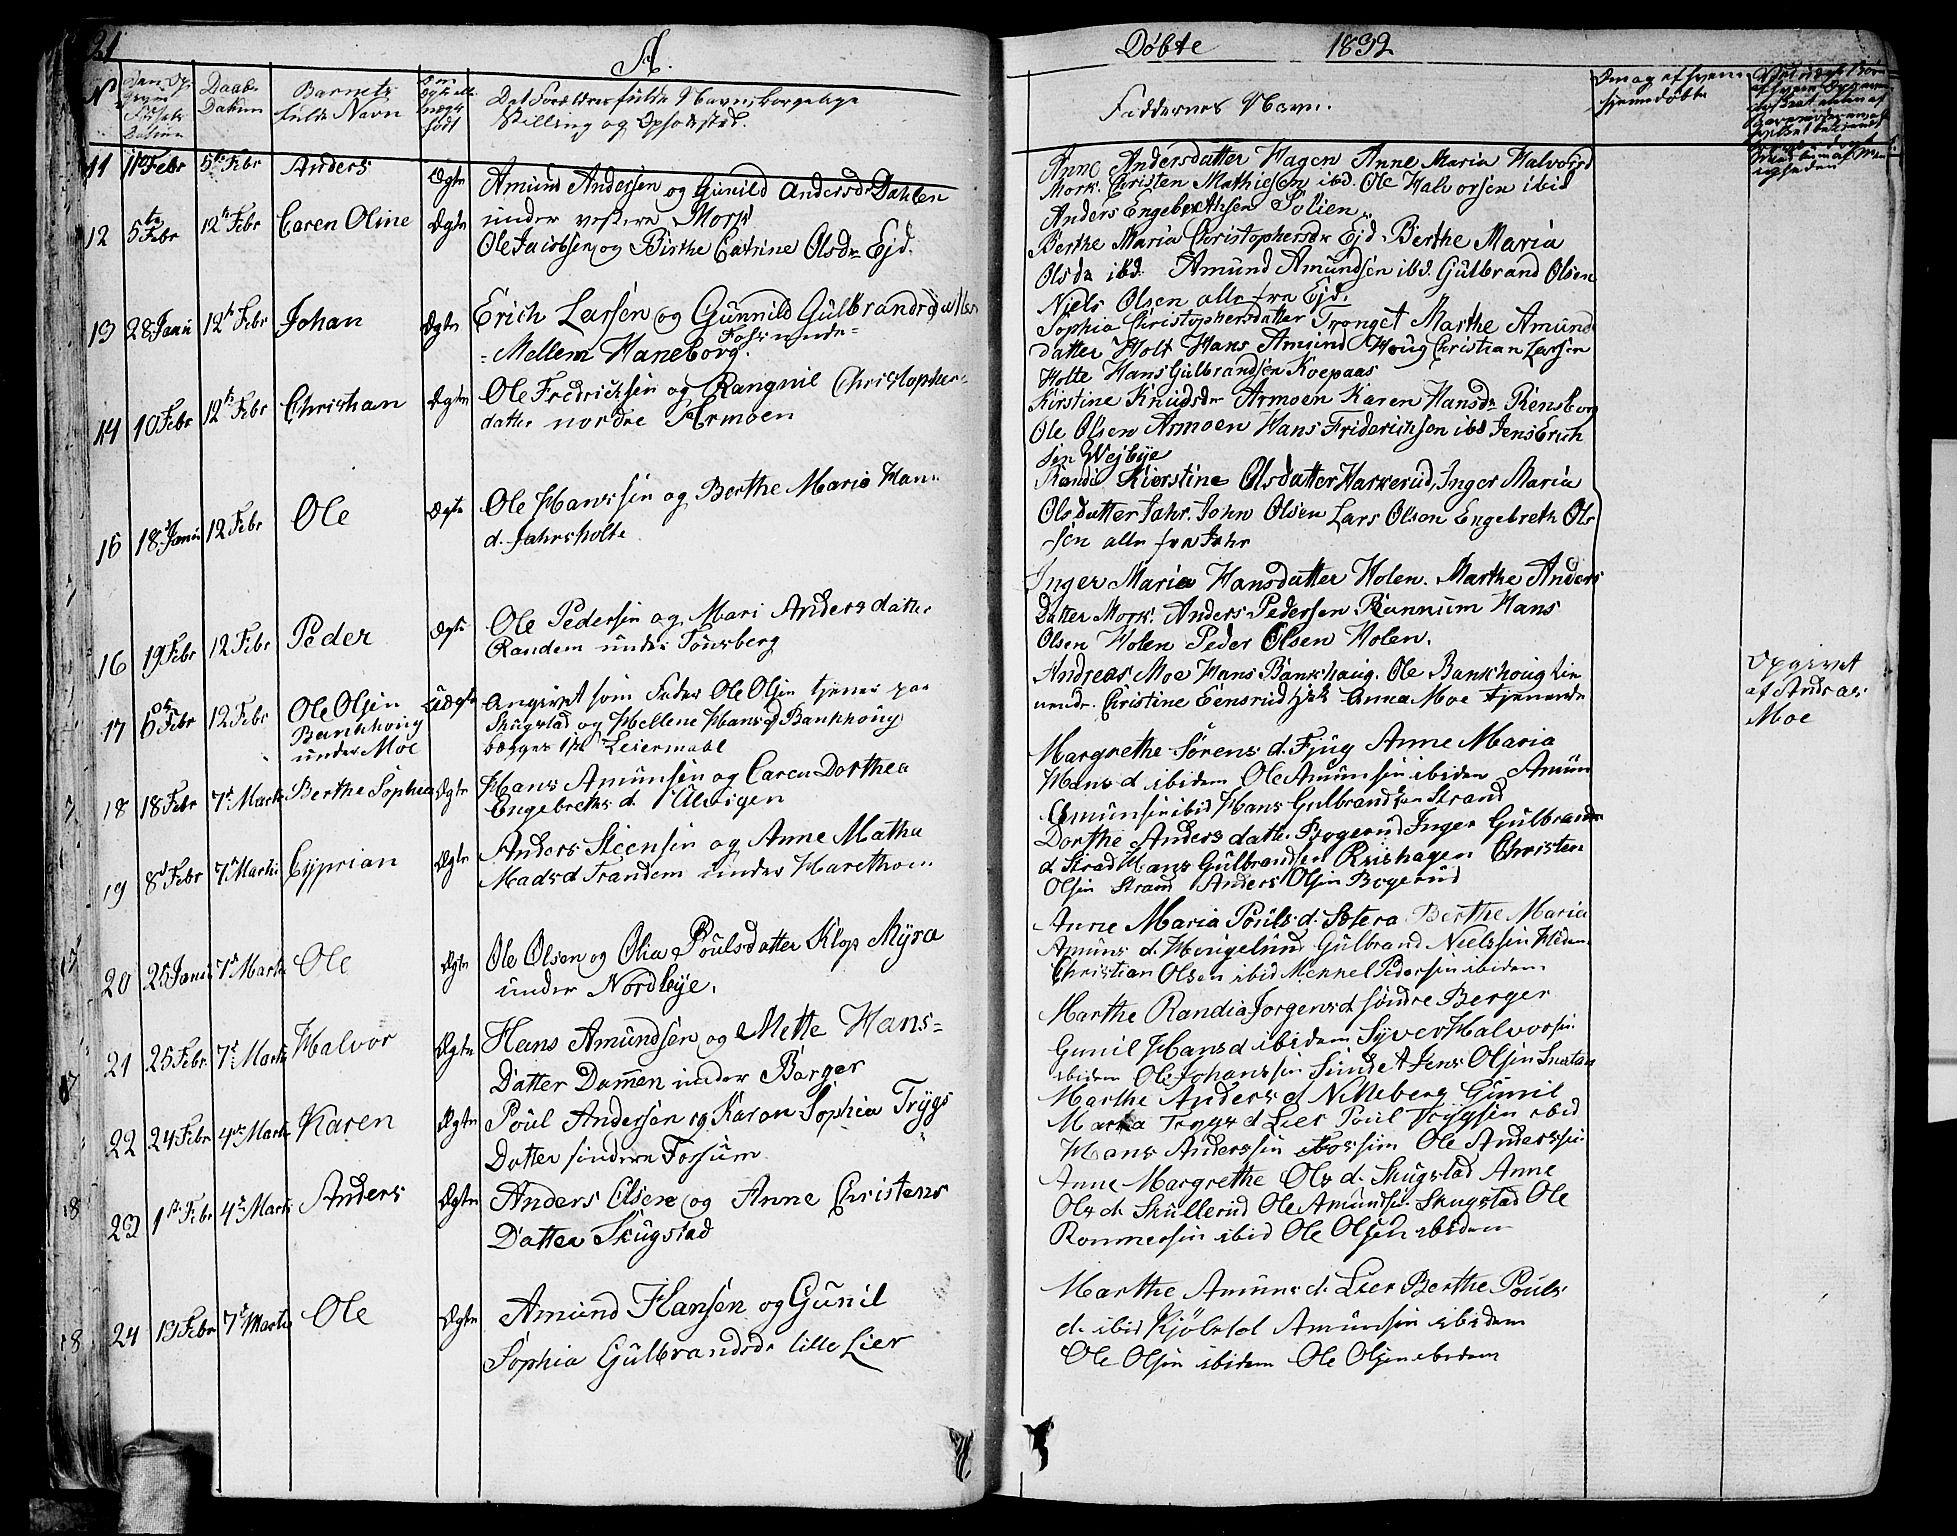 21
A.
Døbte 1832
Daabs Datum
Barnets fulde Navn
Faddernes Navn.
11 11te Febr 5te Febr Anders Ægte Amund Andersen og Gunild Andersdr Dahlen
under vestre Mork
Anne Andersdatter Hagen Anne Maria Halvorsd
Mork. Christen Mathiesen ibd. Ole Halvorsen ibid
Anders Engebrethsen Solien
12 5te Febr 12te Febr Caren Oline Ægte
Ole Jacobsen og Birthe Catrine Olsdr Ejd.
Berthe Maria Christophersdr Ejd. Berthe Maria
Olsdr ibd. Amund Amundsen ibd. Gulbrand Olsen
Niels Olsen alle fra Ejd.
13 28 Janu 12te Febr Johan Ægte Erich Larsen og Gunnild Gulbrandsdatter
Mellem Haneborg.
Sophia Christophersdatter Tronget Marthe Amund
datter Holt Hans Amund Houg Christian Larsen
Holte Hans Gulbrandsen Koepaas
14 10 Febr 12te Febr Christian Ægte Ole Fredrichsen og Rangnil Christopher-
datter nordre Armoen
Kirstine Knudsdr Armoen Karen Hansdr Rensborg
Ole Olsen Armoen Hans Friderichsen ibd Jens Erich
sen Wejbye
16 18 Janu 12 Febr Ole Ægte Ole Hanssen og Berthe Maria Han
d. Jahrsholte
Randi Kierstine Olsdatter Harkerud, Inger Maria
Olsdatter Jahr. John Olsen Lars Olsen Engebreth Ol
sen alle fra Jahr
16 19 Febr 12 Febr Peder Ægte Ole Pedersen og Mari Andersdatter
Randem under Tønsberg
Inger Maria Hansdatter Holen. Marthe Anders
Datter Mork. Anders Pedersen Rannum Hans
Olsen Holen Peder Olsen Holen.
17 6te Febr 12 Febr Ole Olsen
Bankhoug
under Moe
Uægte Angivet som Fader Ole Olsen tjener paa
Skugstad og Hellene Hansd Bankhoug
begges 1ste Leiermaal
Andreas Moe Hans Bankhaug. Ole Bankhoug
Christine Eensrud Anna Moe tjenende
Opgivet
af Andreas
Moe
18 18 Febr 7de Marts Berthe Sophia Ægte Hans Amunsen og Caren Dorthea
Engebreths d.
Margrethe Sørens d. Fjug Anne Maria
Hans d ibidem Ole Amunsen ibiden Amun
Emunsen ibid Hans Gulbrandsen Strand
19 8d Febr 7de Marts Cyprian Ægte Anders Steensen og Anne Mathea
Madsd Trandem under Harethoen
Dorthe Anders datter Bogerud Inger Gulbrands
d Strad Hans Gulbrandsen Riishagen Christen
Olsen Strand Anders Olsen Bogerud
20 25 Janu 7de Marts Ole Ægte Ole Olsen og Olia Poulsdatter Klop Myra
under Nordbye.
Anne Maria Pouls d. Sotera Berthe Maria
Amuns d. Hengelund Gulbrand Nielssen
Christian Olsen ibid Mekkel Pedersen ibidem
21 25 Febr 7de Marts Halvor Ægte Hans Amundsen og Mette Hans-
Datter Dammen under Barger
Marthe Randia Jorgensd søndre Berger
Gunil Hansd ibidem Syver Halvorsen
ibidem Ole Johanssen Sunde Jens Olsen
22 24 Febr 4de Marts Karen Ægte Poul Andersen og Karen Sophia Trygs
Datter søndere Forsum
Marthe Anders d Nitteberg Gunil
Maria Trygs d Lier Poul Trygsen ibid
Hans Anderssen Fossum Ole Anderssen
23 1ste Febr 4de Marts Anders Ægte Anders Olsen og Anne Christens
Datter Skugstad
Anne Margrethe Ols d. Skugstad Anne
Ols d. Skullerud Ole Amundsen Skugstad Ole
Rommersen ibid Ole Olsen ibidem
24 13 Febr 7de Marts Ole Ægte Amund Hansen og Gunil
Sophia Gulbrandsdr lille Lier
Marthe Amuns d. Lier Berthe Pouls
d. ibid Kjølstol Amunsen ibidem
Ole Olsen ibidem Ole Olsen ibidem